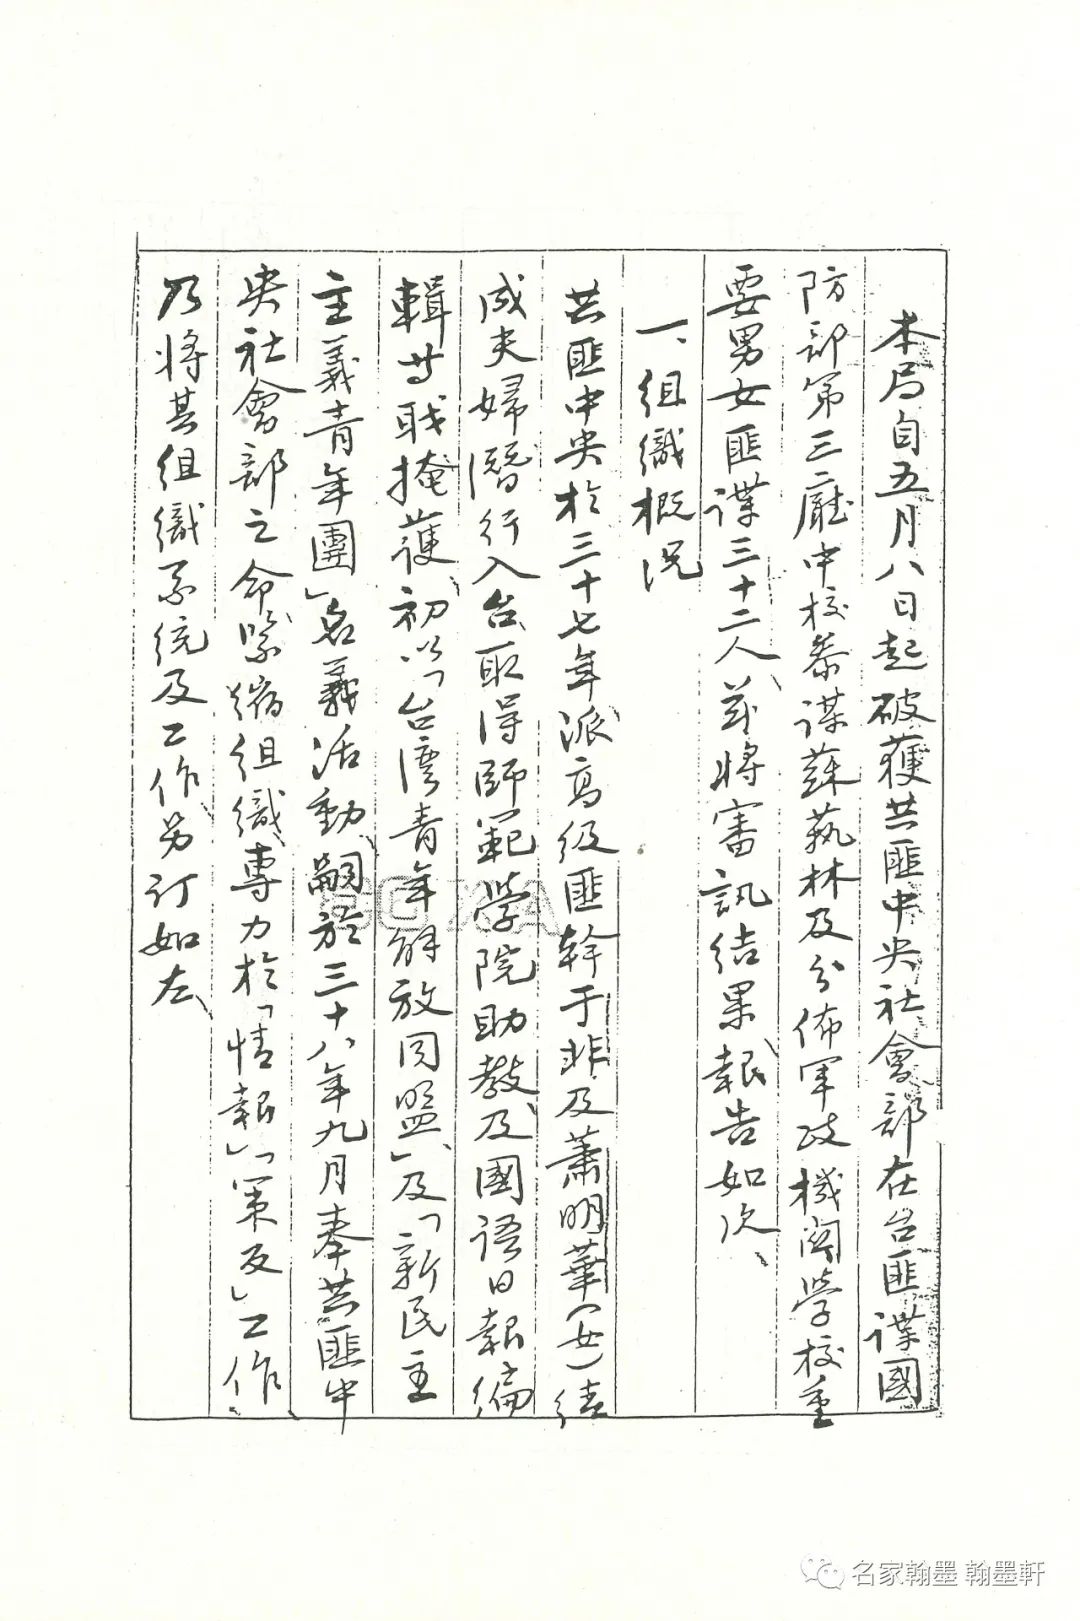 本局自五月八日起破獲共匪中央社會部在台匪諜國
防部第三廳中校參謀蘇藝林及分佈軍政機關學校重
要男女匪諜三十二人、茲將審訊結果報告如次、
一、組織概況
共匪中央於三十七年派高級匪幹于非及蕭明華（女）結
成夫婦潛行入台取得師範學院助教及國語日報編
輯等職掩護、初以「台灣青年解放同盟、」及「新民主
主義青年團」名義活動、嗣於三十八年九月奉共匪中
央社會部之命緊縮組織專力於「情報」「策反」工作、
乃將其組織系統及工作另訂如左、
名家翰墨 翰墨軒